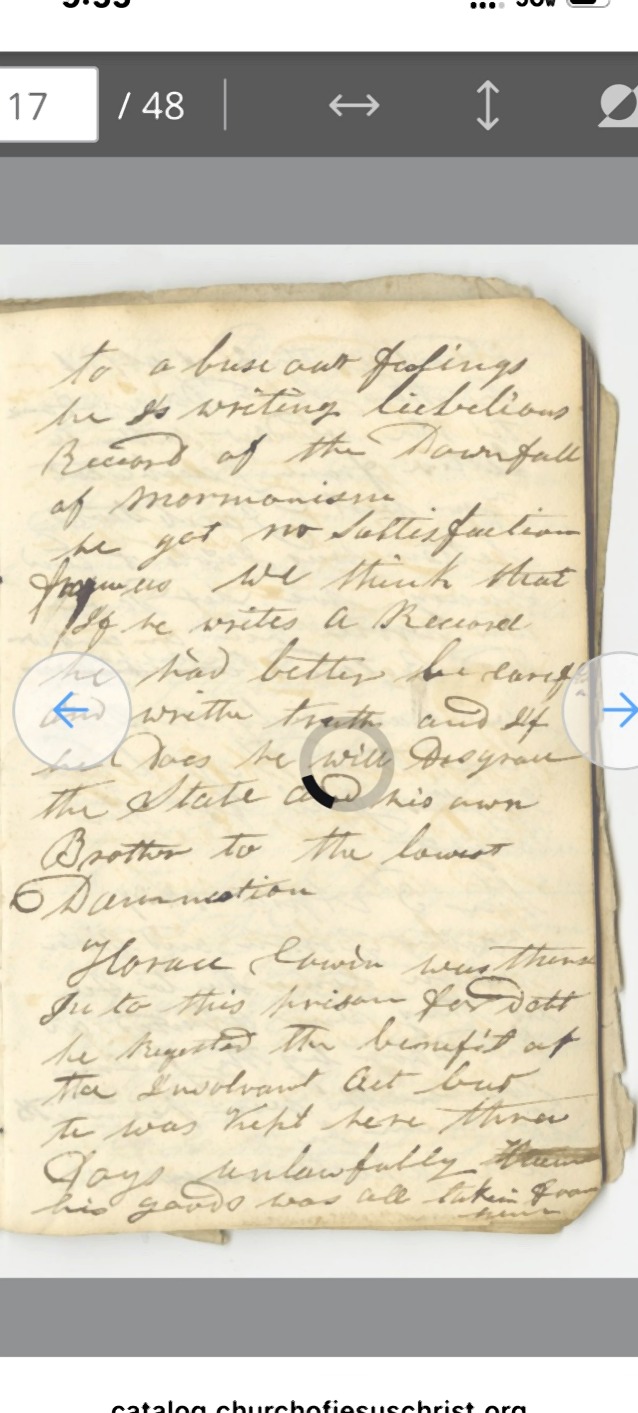 17 / 48
to abuse our feelings
he Is writing liebelious
Record of the Downfall
of Mormonism
he got no sattisfaction
from us we think that
If he writes a Record
he had better be caref
and writhe truth and If
he Does he will Disgrace
the State and his own
Brother to the lowest
Damnation
Horace was
In to this prison for Dett
he Rejested the benefit of
the Insolvant Act but
he was Kept here three
Days unlawfully
his goods was all taken from
catalog.churchofjesuschrist.org